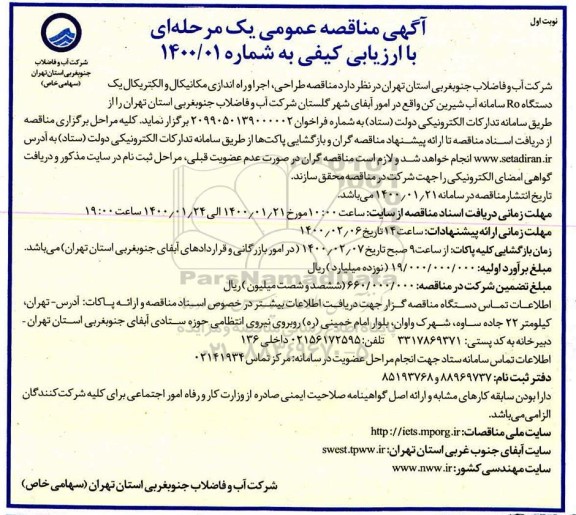 نوبت اول
آگهی مناقصه عمومی یک مرحله‌ای
با ارزیابی کیفی به شماره ۱۴۰۰/۰۱
شرکت آب و فاضلاب
جنوبغربی استان تهران
(سهامی خاص)
شرکت آب و فاضلاب جنوبغربی استان تهران در نظر دارد مناقصه طراحی، اجرا و راه اندازی مکانیکال و الکتریکال یک
دستگاه Ro سامانه آب شیرین کن واقع در امور آبفای شهر گلستان شرکت آب و فاضلاب جنوبغربی استان تهران را از
طریق سامانه تدارکات الکترونیکی دولت (ستاد) به شماره فراخوان ۲۰۹۹۰۵۰۱۳۹۰۰۰۰۰۲ برگزار نماید. کلیه مراحل برگزاری مناقصه
از دریافت اسناد مناقصه تا ارائه پیشنهاد مناقصه گران و بازگشایی پاکت‌ها از طریق سامانه تدارکات الکترونیکی دولت (ستاد) به آدرس
www.setadiran.ir انجام خواهد شد و لازم است مناقصه گران در صورت عدم عضویت قبلی، مراحل ثبت نام در سایت مذکور و دریافت
گواهی امضای الکترونیکی را جهت شرکت در مناقصه محقق سازند.
تاریخ انتشار مناقصه در سامانه ۱۴۰۰٫۰۱٫۲۱ می‌باشد.
مهلت زمانی دریافت اسناد مناقصه از سایت: ساعت ۱۰:۰۰ مورخ ۱۴۰۰٫۰۱٫۲۱ الی ۱۴۰۰٫۰۱٫۲۴ ساعت ۱۹:۰۰
مهلت زمانی ارائه پیشنهادات: ساعت ۱۴ تاریخ ۱۴۰۰٫۰۲٫۰۶
زمان بازگشایی کلیه پاکات: از ساعت ۹ صبح تاریخ ۱۴۰۰٫۰۲٫۰۷ (در امور بازرگانی و قراردادهای آبفای جنوبغربی استان تهران) می‌باشد.
مبلغ برآورد اولیه: ۱۹/۰۰۰/۰۰۰/۰۰۰ (نوزده میلیارد) ریال
مبلغ تضمین شرکت در مناقصه: ۶۶۰/۰۰۰/۰۰۰ (ششصد و شصت میلیون) ریال
اطلاعات تماس دستگاه مناقصه گزار جهت دریافت اطلاعات بیشتر در خصوص اسناد مناقصه و ارائه پاکات: آدرس - تهران،
کیلومتر ۲۲ جاده ساوه، شهرک واوان، بلوار امام خمینی (ره) روبروی نیروی انتظامی حوزه ستادی آبفای جنوبغربی استان تهران -
دبیرخانه به کد پستی: ۳۳۱۷۸۶۹۳۷۱ تلفن: ۰۲۱۵۶۱۷۲۵۹۵ داخلی ۱۳۶
اطلاعات تماس سامانه ستاد جهت انجام مراحل عضویت در سامانه: مرکز تماس ۰۲۱۴۱۹۳۴
دفتر ثبت نام: ۸۸۹۶۹۷۳۷ و ۸۵۱۹۳۷۶۸
دارا بودن سابقه کارهای مشابه و ارائه اصل گواهینامه صلاحیت ایمنی صادره از وزارت کار و رفاه امور اجتماعی برای کلیه شرکت کنندگان
الزامی می‌باشد.
سایت ملی مناقصات: http://iets.mporg.ir
سایت آبفای جنوب غربی استان تهران: swest.tpww.ir
سایت مهندسی کشور: www.nww.ir
شرکت آب و فاضلاب جنوبغربی استان تهران (سهامی خاص)
ParsNamadData